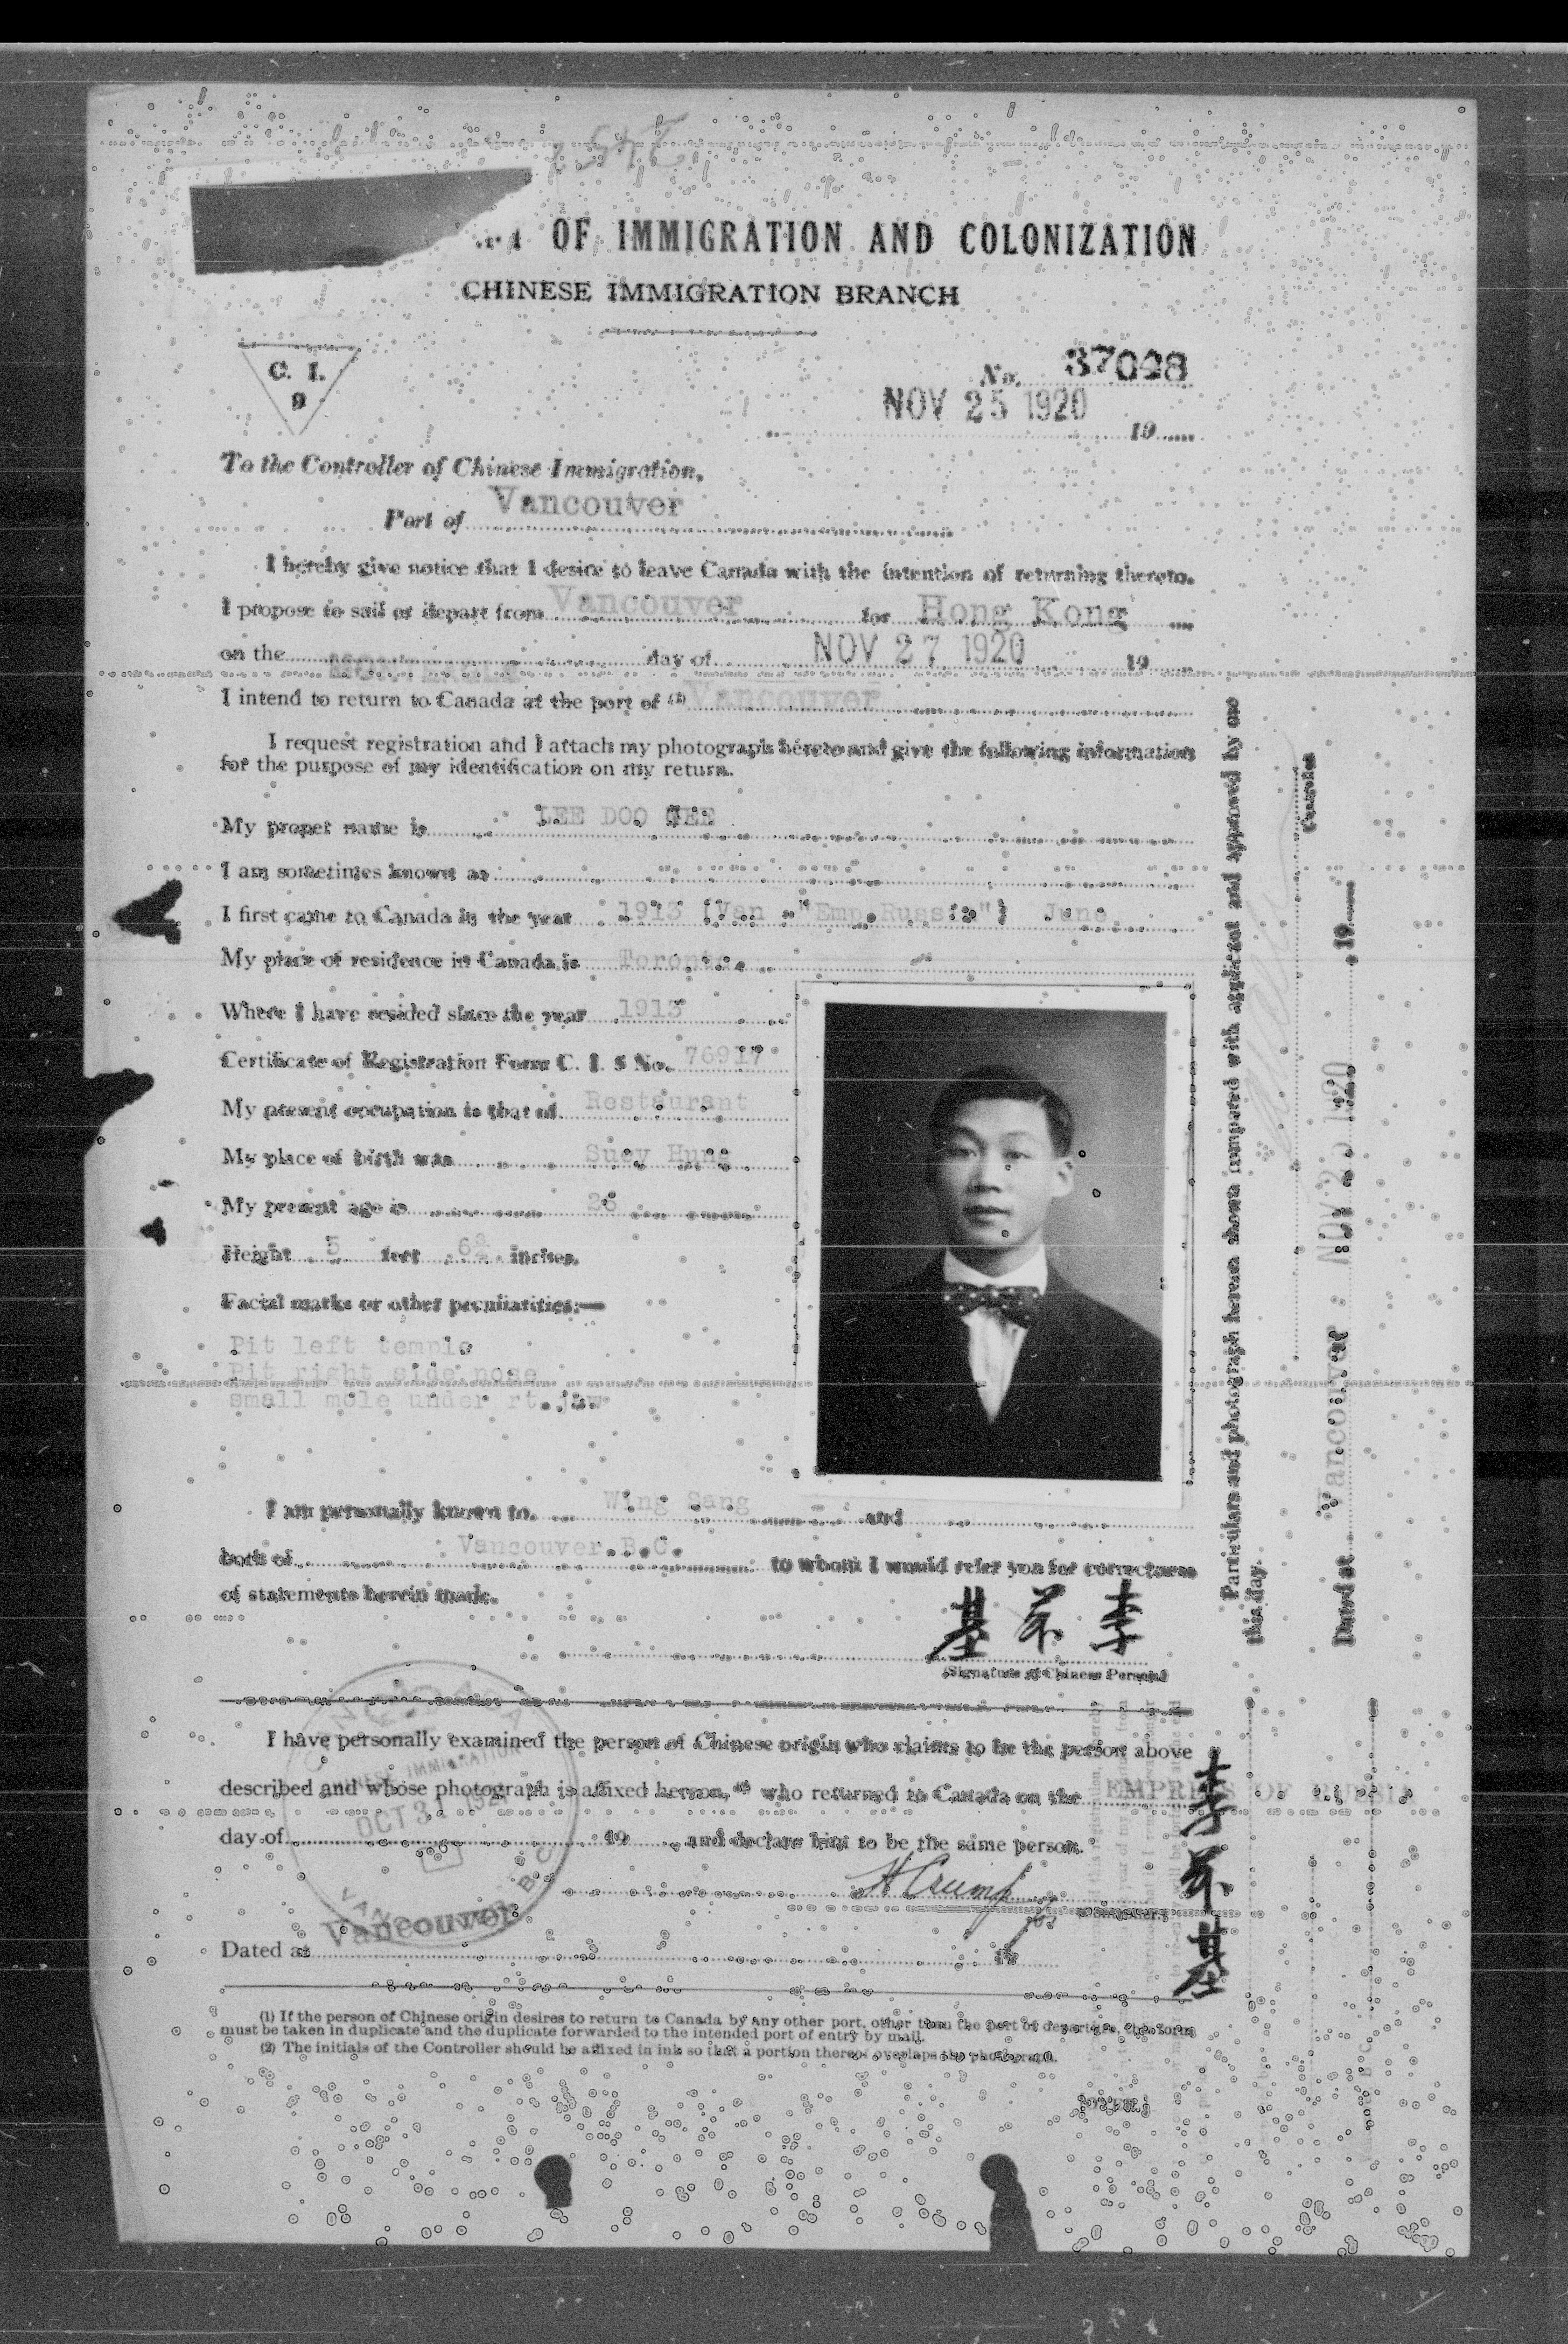 OF IMMIGRATION AND COLONIZATION
CHINESE IMMIGRATION BRANCH
C. I.
9
No. 37098
NOV 25 1920 19
To the Controller of Chinese Immigration,
Port of Vancouver
I hereby give notice that I desire to leave Canada with the intention of returning thereto.
I propose to sail or depart from Vancouver for Hong Kong
on the day of NOV 27 1920 19
I intend to return to Canada at the port of (1) Vancouver
I request registration and I attach my photograph hereto and give the following information
for the purpose of my identification on my return.
My proper name is LEE DOO
I am sometimes known as
I first came to Canada in the year 1913 (Van "Emp. Russia") June
My place of residence in Canada is Toronto
Where I have resided since the year 1913
Certificate of Registration Form C. I. 5 No. 76917
My present occupation is that of Restaurant
My place of birth was Suey Hung
My present age is
Height 5 feet inches.
Facial marks or other peculiarities:—
Pit left temple
Pit right side nose
small mole under rt. jaw
I am personally known to Wing Sang and
both of Vancouver B.C. to whom I would refer you for correctness
of statements herein made.
基 李
(Signature of Chinese Person)
I have personally examined the person of Chinese origin who claims to be the person above
described and whose photograph is affixed hereon, (2) who returned to Canada on the EMPRESS OF RUSSIA
day of 19 and declare him to be the same person.
H Crump
Controller.
Vancouver
Dated at 19
(1) If the person of Chinese origin desires to return to Canada by any other port, other than the port of departure, this form
must be taken in duplicate and the duplicate forwarded to the intended port of entry by mail.
(2) The initials of the Controller should be affixed in ink so that a portion thereof overlaps the photograph.
Particulars and photograph hereon shown compared with applicant and approved by me
this day.
Controller
Dated at Vancouver NOV 25 1920 19
李 基